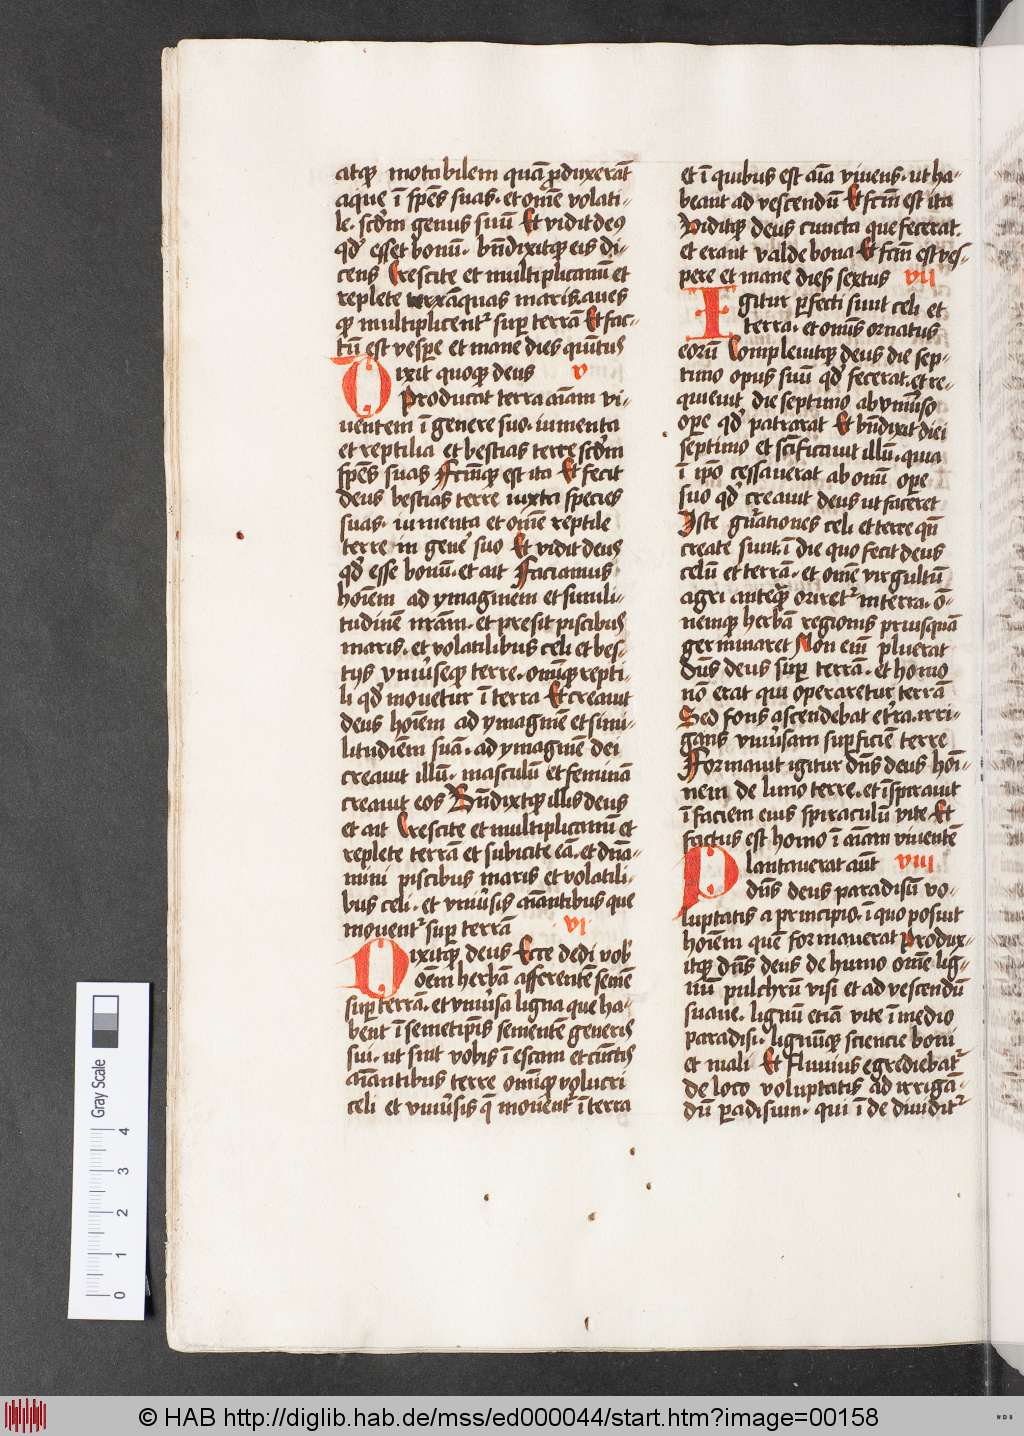 atqꝫ motabilem quā ꝓduxerāt
aque ī sp̄es suas · et om̄e volati-
le · scd̄m genus suū Et vidit deꝰ
qd̕ esset bonū · bn̄dixitqꝫ eis di-
cens Crescite et multiplicamī et
replete aquas maris · aues
qꝫ multiplicent᷑ suꝑ terrā Et fac-
tū est vesꝑe et mane dies quītus
Dixit quoqꝫ deus v
Producat terra aīam vi-
uentem ī genere suo · iumenta
et reptilia et bestias terre scd̄m
sp̄es suas Fcm̄qꝫ est ita Et fecit
deus bestias terre iuxta species
suas · iumenta et om̄e reptile
terre in gene̕ suo Et vidit deus
qd̕ esse bonū · et ait Faciamus
hoīem ad ymaginem et simili-
tudinē nr̄am · et presit piscibus
maris · et volatilibus celi et bes-
tijs vniu̕seqꝫ terre · om̄iqꝫ repti-
li qd̕ mouetur ī terra Et creauit
deus hoīem ad ymaginē et simi-
litudinē suā · ad ymaginē dei
creauit illū · masculū et feminā
creauit eos Bn̄dixitqꝫ illis deus
et ait Crescite et multiplicamī et
replete terrā et subicite eā · et dn̄a-
mini piscibus maris et volatili-
bus celi · et vniu̕sis aīantibus que
mouent᷑ suꝑ terrā vi
Dixitqꝫ deus Ecce dedi vob̕
oēm herbā afferentē semē
suꝑ terrā · et vniu̕sa ligna que ha-
bent ī semetip̄is sementē generis
sui · ut sint vobis ī escam et cūctis
aīantibus terre om̄iqꝫ volucri
celi et vniu̕sis q̄ mouent᷑ ī terra
et ī quibus est aīa viuens · ut ha-
beant ad vescendū Et fcm̄ est ita
Viditqꝫ deus cuncta que fecerat ·
et erant valde bona Et fcm̄ est ves-
pere et mane dies sextus vii
Igitur ꝑfecti sunt celi et
terra · et om̄is ornatus
eorū Compleuitqꝫ deus die sep-
timo opus suū qd̕ fecerat · et re-
quieuit die septimo ab vniu̕so
oꝑe qd̕ patrarat Et bn̄dixit diei
septimo et scīficauit illū · quia
ī ip̄o cessauerat ab om̄i oꝑe
suo qd̕ creauit deus ut faceret
Iste gn̄rationes celi et terre qn̄
create sunt · ī die quo fecit deus
celū et terrā · et om̄e virgultū
agri anteqꝫ oriret᷑ in terra · ō-
nemqꝫ herbā regionis priusquā
germinaret Non eī pluerat
dn̄s deus suꝑ terrā · et homo
nō erat qui operaretur terrā
Sed fons ascendebat e t̕ra · irri-
gans vniu̕sam suꝑficiē terre
Formauit igitur dn̄s deus hoī-
nem de limo terre · et īspirauit
ī faciem eius spiraculū vite · Et
factus est homo ī aīam viuentē
Plantauerat aūt viii
dn̄s deus paradisū vo-
luptatis a principio · ī quo posuit
hoīem quē formauerat Produx-
itqꝫ dn̄s deus de humo om̄e lig-
nū pulchrū visi et ad vescendū
suaue · lignū etiā vite ī medio
paradisi · lignūqꝫ sciencie boni
et mali Et fluuius egrediebat᷑
de loco voluptatis ad irrigā-
dū ꝑadisum · qui ī de diuidit᷑
Gray Scale
0 1 2 3 4
© HAB http://diglib.hab.de/mss/ed000044/start.htm?image=00158